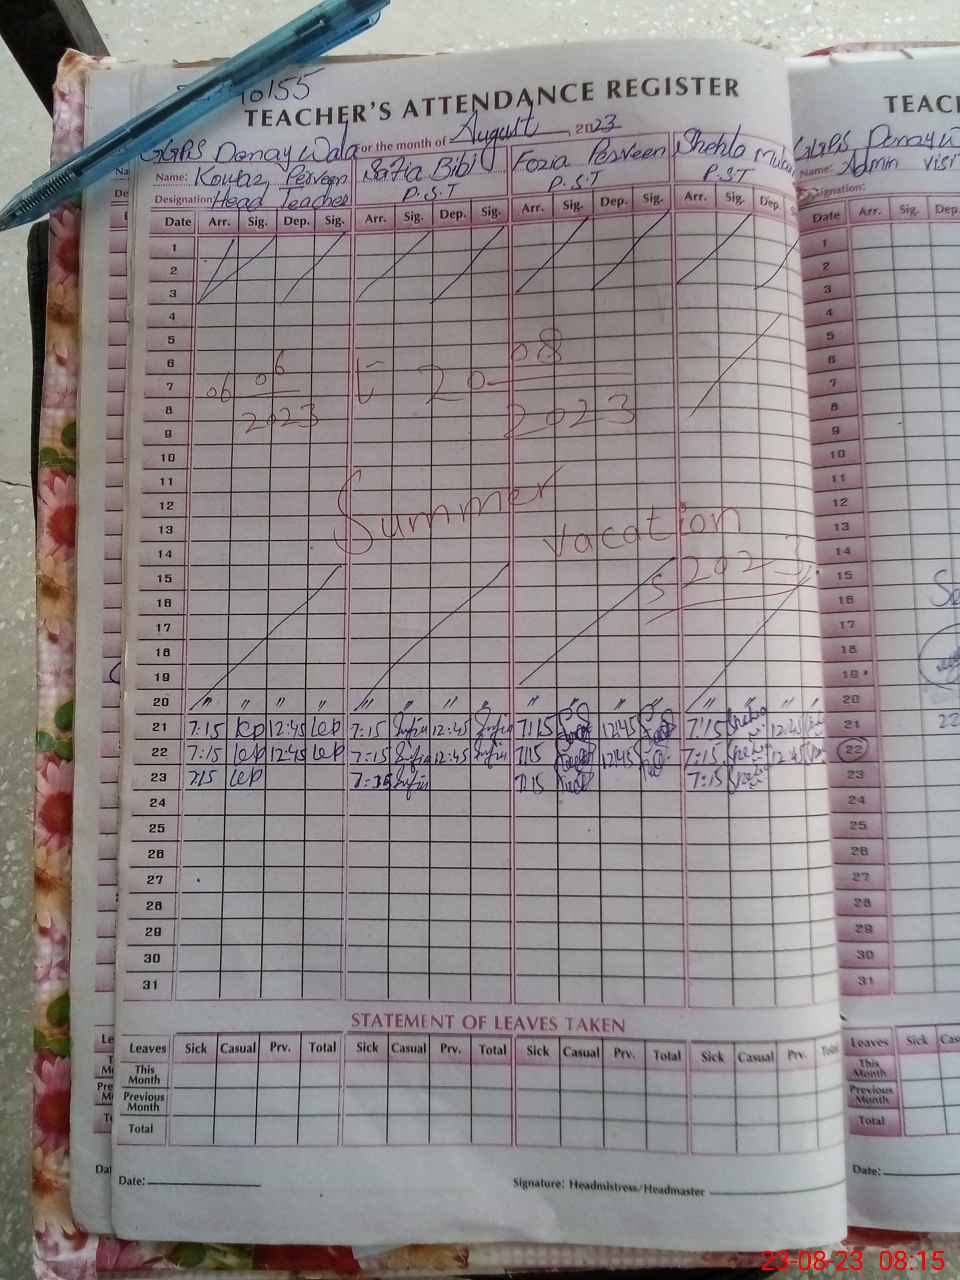 40155
TEACHER'S ATTENDANCE REGISTER
GGPS Danay Wala for the month of August, 2023
Name: Kowsar Perveen Safia Bibi Fozia Perveen Shehla
Designation Head Teacher P.S.T P.S.T P.S.T
Date Arr. Sig. Dep. Sig. Arr. Sig. Dep. Sig. Arr. Sig. Dep. Sig. Arr. Sig. Dep.
1
2
3
4
5
6
7
8
9
06 06 2023 t 20-08 2023
10
11
12
13
14
Summer vacation
15
S 2023
16
17
18
19
20 " " " " " " " " " " " " " " "
21 7:15 KP 12:45 7:15 Safia 12:45 Safia 7:15 12:45 7:15 12:45
22 7:15 12:45 7:15 Safia 12:45 Safia 7:15 12:45 7:15 12:45
23 7:15 7:15 Safia 7:15 7:15
24
25
26
27
28
29
30
31
STATEMENT OF LEAVES TAKEN
Leaves Sick Casual Prv. Total Sick Casual Prv. Total Sick Casual Prv. Total Sick Casual Prv. Total
This Month
Previous Month
Total
Date:
Signature: Headmistress/Headmaster
TEAC
GGPS Danay W
Name: Admin visit
Designation:
Date Arr. Sig. Dep.
1
2
3
4
5
6
7
8
9
10
11
12
13
14
15
16
17
18
19
20
21 22
22
23
24
25
26
27
28
29
30
31
Leaves Sick Cas
This Month
Previous Month
Total
Date:
23-08-23 08:15